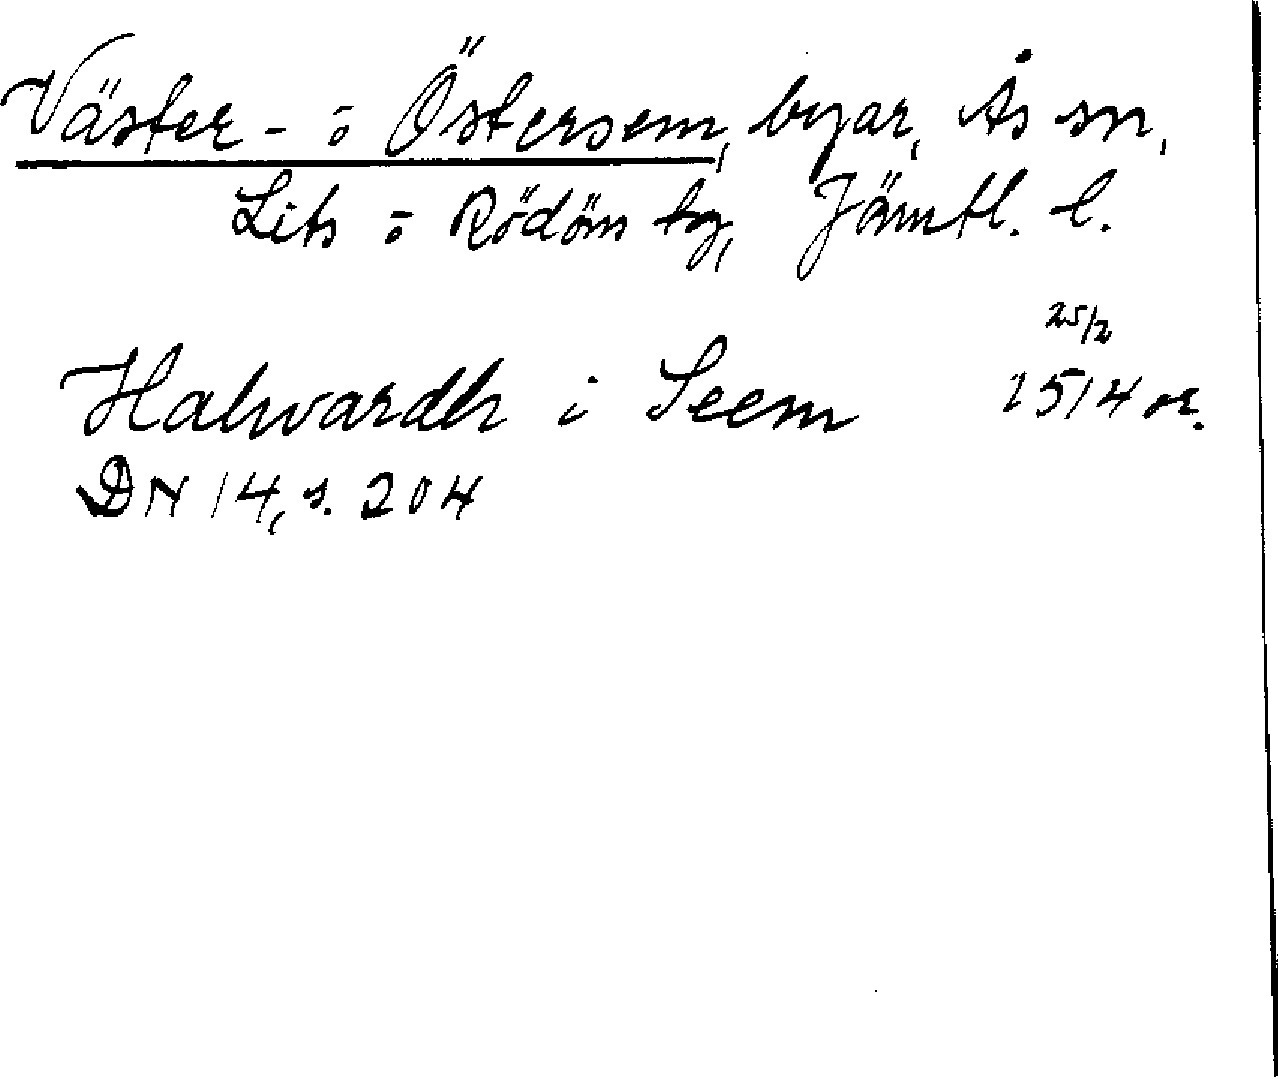 Väster- o Östersem, byar, Ås sn,
Lits o Rödöns tg, Jämtl. l.
25/2
Halwardh i Seem 1514 or.
DN 14, s. 204